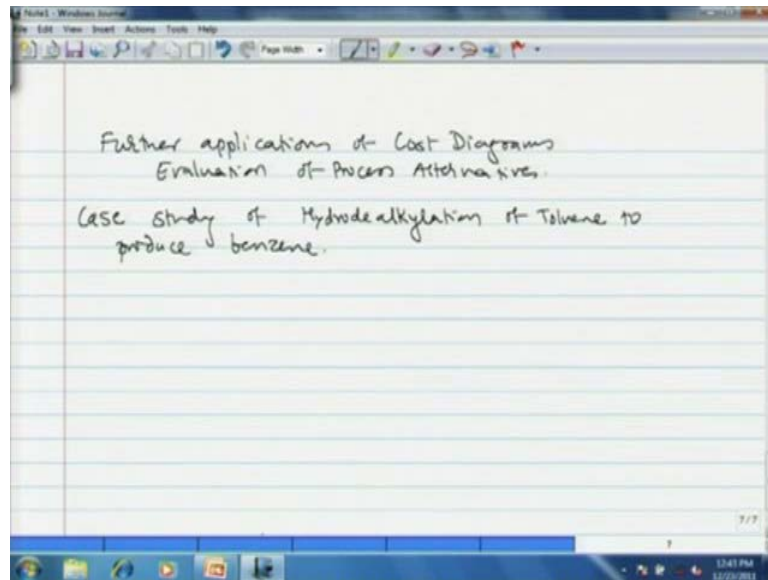 Note1 - Windows Journal
File Edit View Insert Actions Tools Help
Page Width
Further applications of Cost Diagrams
Evaluation of Process Alternatives.
Case study of Hydrodealkylation of Toluene to
produce benzene.
7/7
7
12:43 PM
12/23/2011